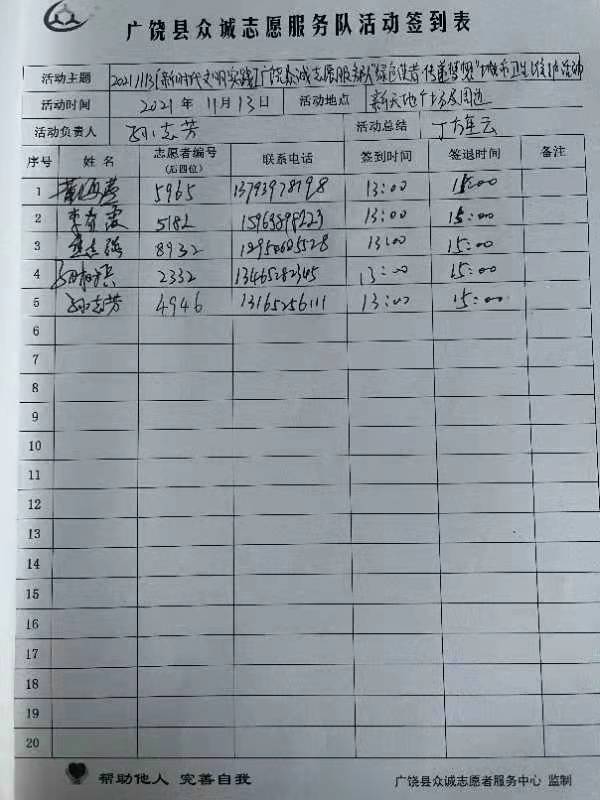 广饶县众诚志愿服务队活动签到表
活动主题 20211113「新时代文明实践」广饶众诚志愿服务队"绿色使者 传递梦想"城市卫生维护活动
活动时间 2021年 11月13日 活动地点 新天地广场及周边
活动负责人 孙志芳 活动总结
序号 姓名 志愿者编号(后四位) 联系电话 签到时间 签退时间 备注
1 5965 13793978798 13:00 15:00
2 李有霞 5182 13:00 15:00
3 8932 13:00 15:00
4 2332 13465282345 13:00 15:00
5 孙志芳 4946 13165256111 13:00 15:00
6
7
8
9
10
11
12
13
14
15
16
17
18
19
20
帮助他人 完善自我 广饶县众诚志愿者服务中心 监制